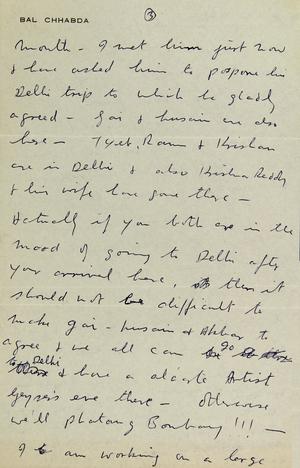 BAL CHHABDA
③
month - I met him just now
& have asked him to postpone his
Delhi trip to which he gladly
agreed - Gai & Husain are also
here - Tyeb, Ram & Krishan
are in Delhi & also Krishna Reddy
& his wife have gone there -
Actually if you both are in the
mood of going to Delhi after
your arrival here, then it
should not be difficult to
make Gai - Husain & Akbar to
agree & we all can go
to Delhi & have a Artist
eve there - otherwise
we'll Bombay !!! -
I am working on a large